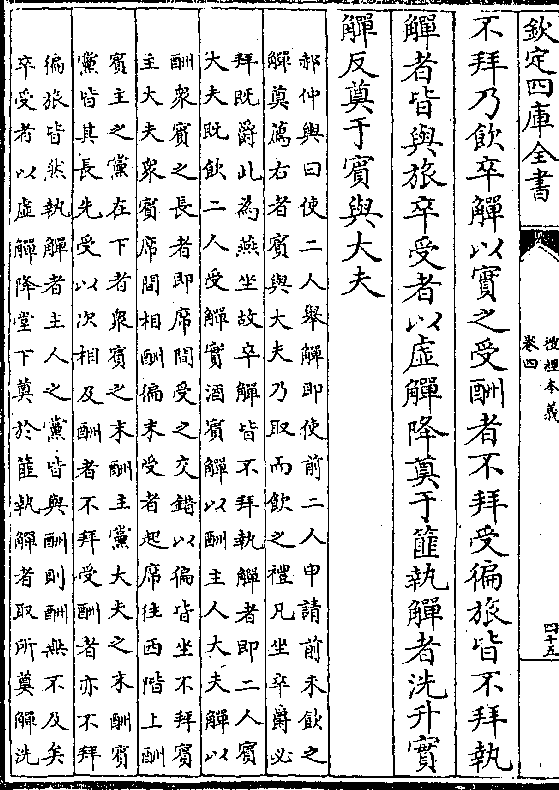 欽定四庫全書
禮經本義
卷四
四十五
不拜乃飲卒觶以實之受酬者不拜受徧旅皆不拜執
觶者皆與旅卒受者以虛觶降奠于篚執觶者洗升實
觶反奠于賓與大夫
郝仲輿曰使二人舉觶即使前二人申請前未飲之
觶奠薦右者賓與大夫乃取而飲之禮凡坐卒爵必
拜既爵此為燕坐故卒觶皆不拜執觶者即二人賓
大夫既飲二人受觶實酒賓觶以酬主人大夫觶以
酬衆賓之長者即席間受之交錯以徧皆坐不拜賓
主大夫衆賓席間相酬徧末受者起席往西階上酬
賓主之黨在下者衆賓之末酬主黨大夫之末酬賓
黨皆其長先受以次相及酬者不拜受酬者亦不拜
徧旅皆然執觶者主人之黨皆與酬則酬無不及矣
卒受者以虛觶降堂下奠於篚執觶者取所奠觶洗